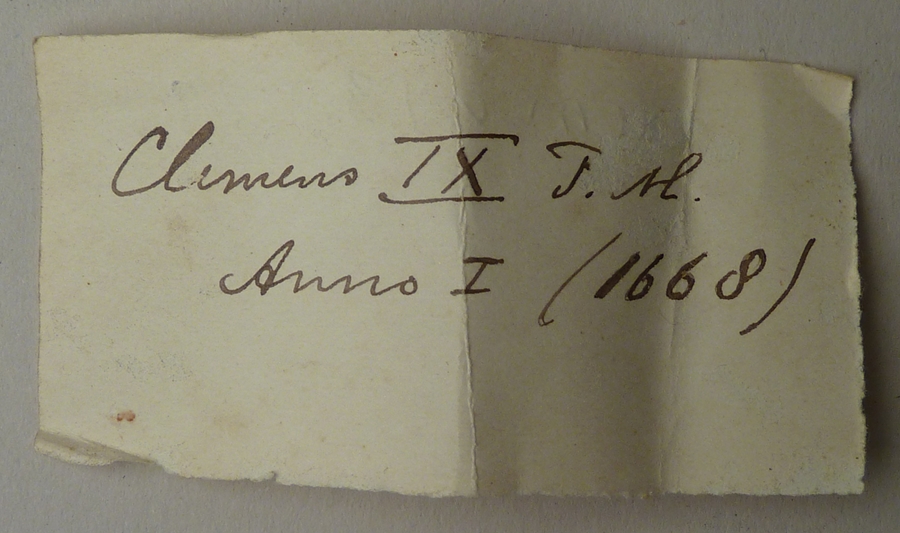 Clemens IX P. M.
Anno I (1668)